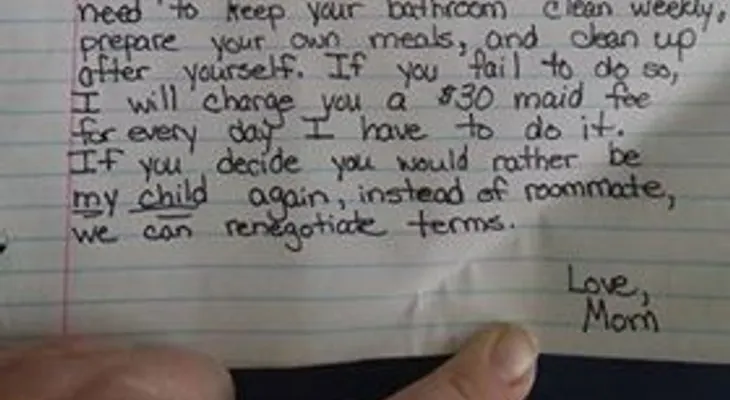 need to keep your bathroom clean weekly,
prepare your own meals, and clean up
after yourself. If you fail to do so,
I will charge you a $30 maid fee
for every day I have to do it.
If you decide you would rather be
my child again, instead of roommate,
we can renegotiate terms.
Love,
Mom